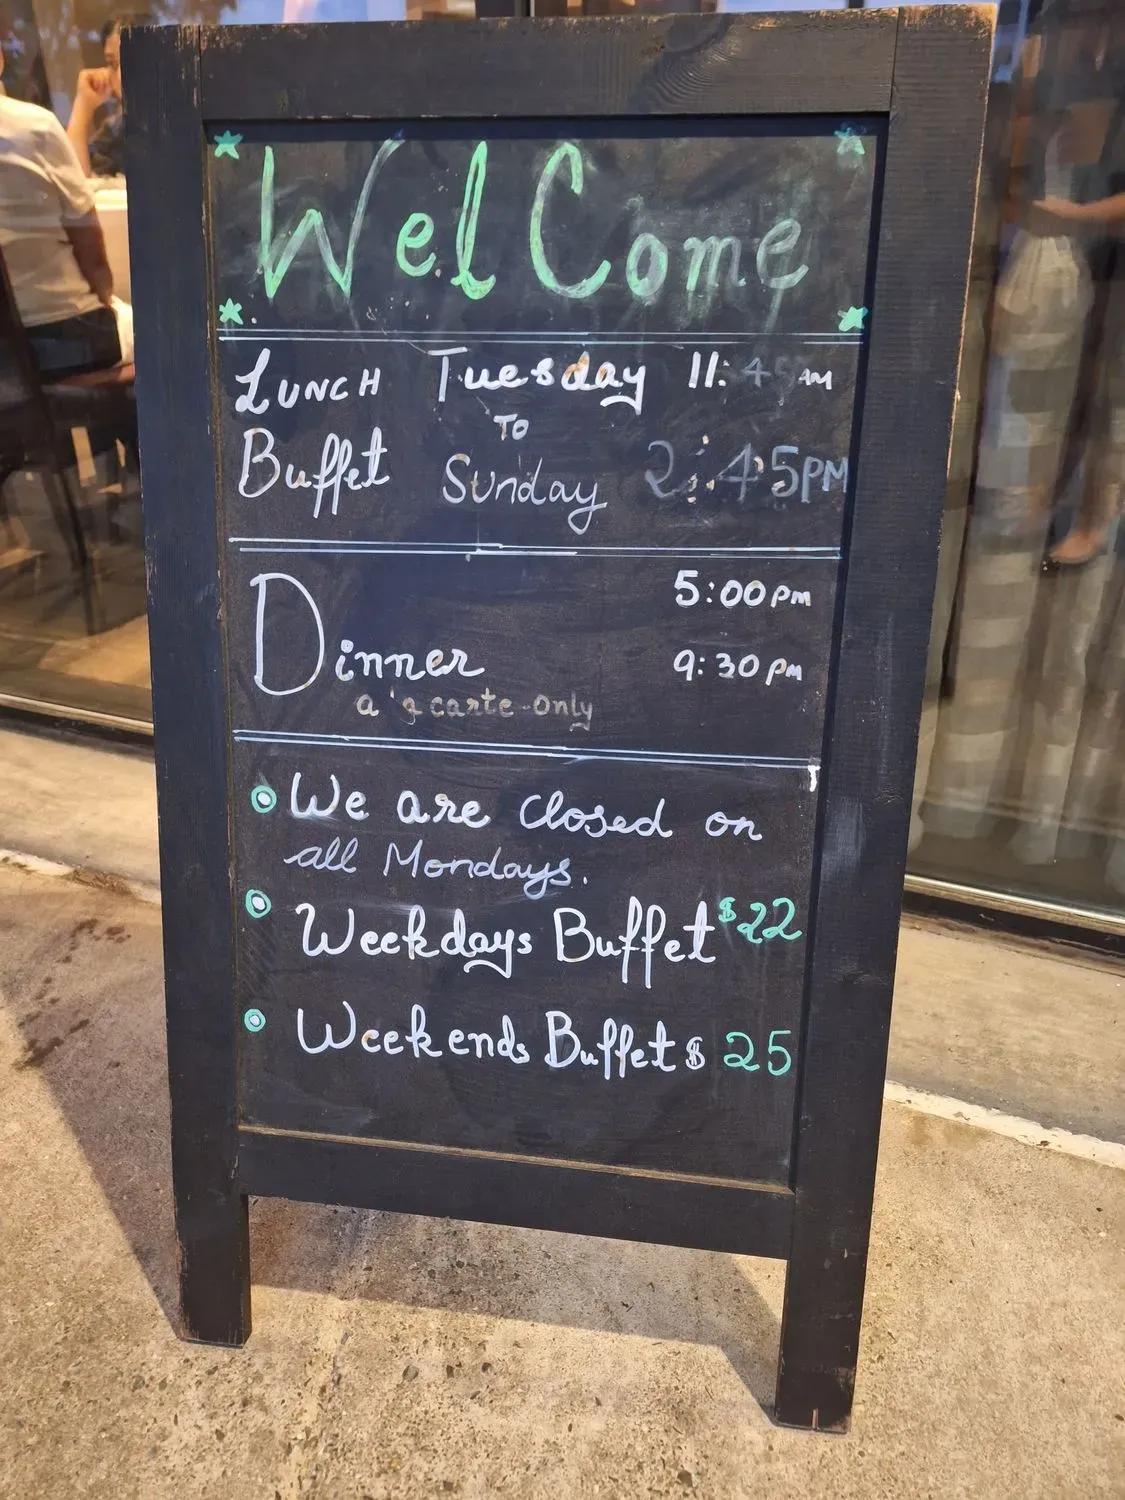 WelCome
LUNCH Tuesday 11:45AM
TO
Buffet Sunday 2:45PM
5:00pm
Dinner 9:30pm
a carte-only
We are closed on
all Mondays.
Weekdays Buffet $22
Weekends Buffet $ 25